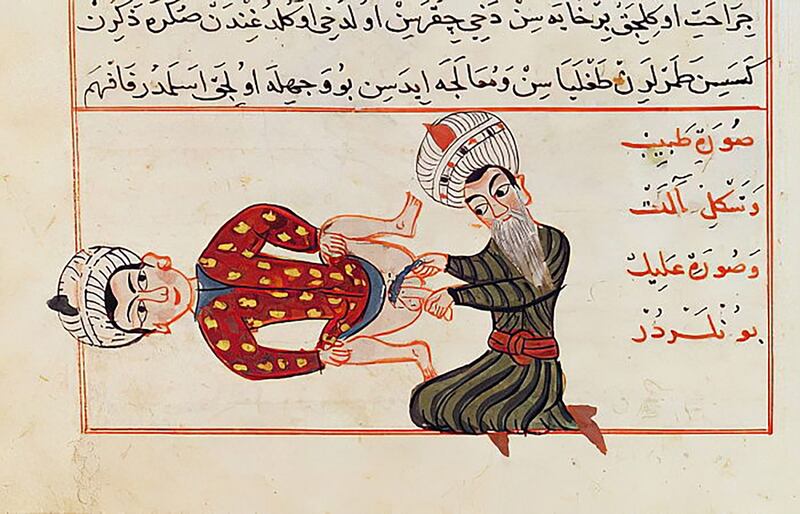 جراحت اوكلجق بر خايه سن دخي چقرسن اولدخي اوكلدغندن صكره ذكرن
كسسن طمرلرن طغلياسن ومعالجه ايدسن بو وجهله اولجق اسلمدر فافهم
صورة طبيب
وشكل آلت
وصورة عليل
بونلردر